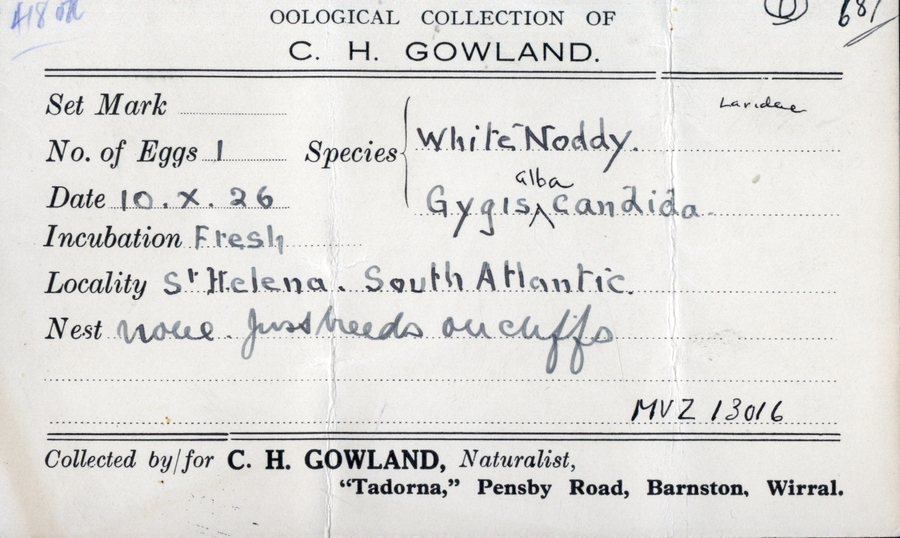 418
681
OOLOGICAL COLLECTION OF
C. H. GOWLAND.
Laridae
Set Mark
No. of Eggs 1 Species White Noddy.
alba
Date 10. X. 26 Gygis ^ candida
Incubation Fresh
Locality St Helena. South Atlantic.
Nest none. Just breeds on cliffs
MVZ 13016
Collected by/for C. H. GOWLAND, Naturalist,
"Tadorna," Pensby Road, Barnston, Wirral.